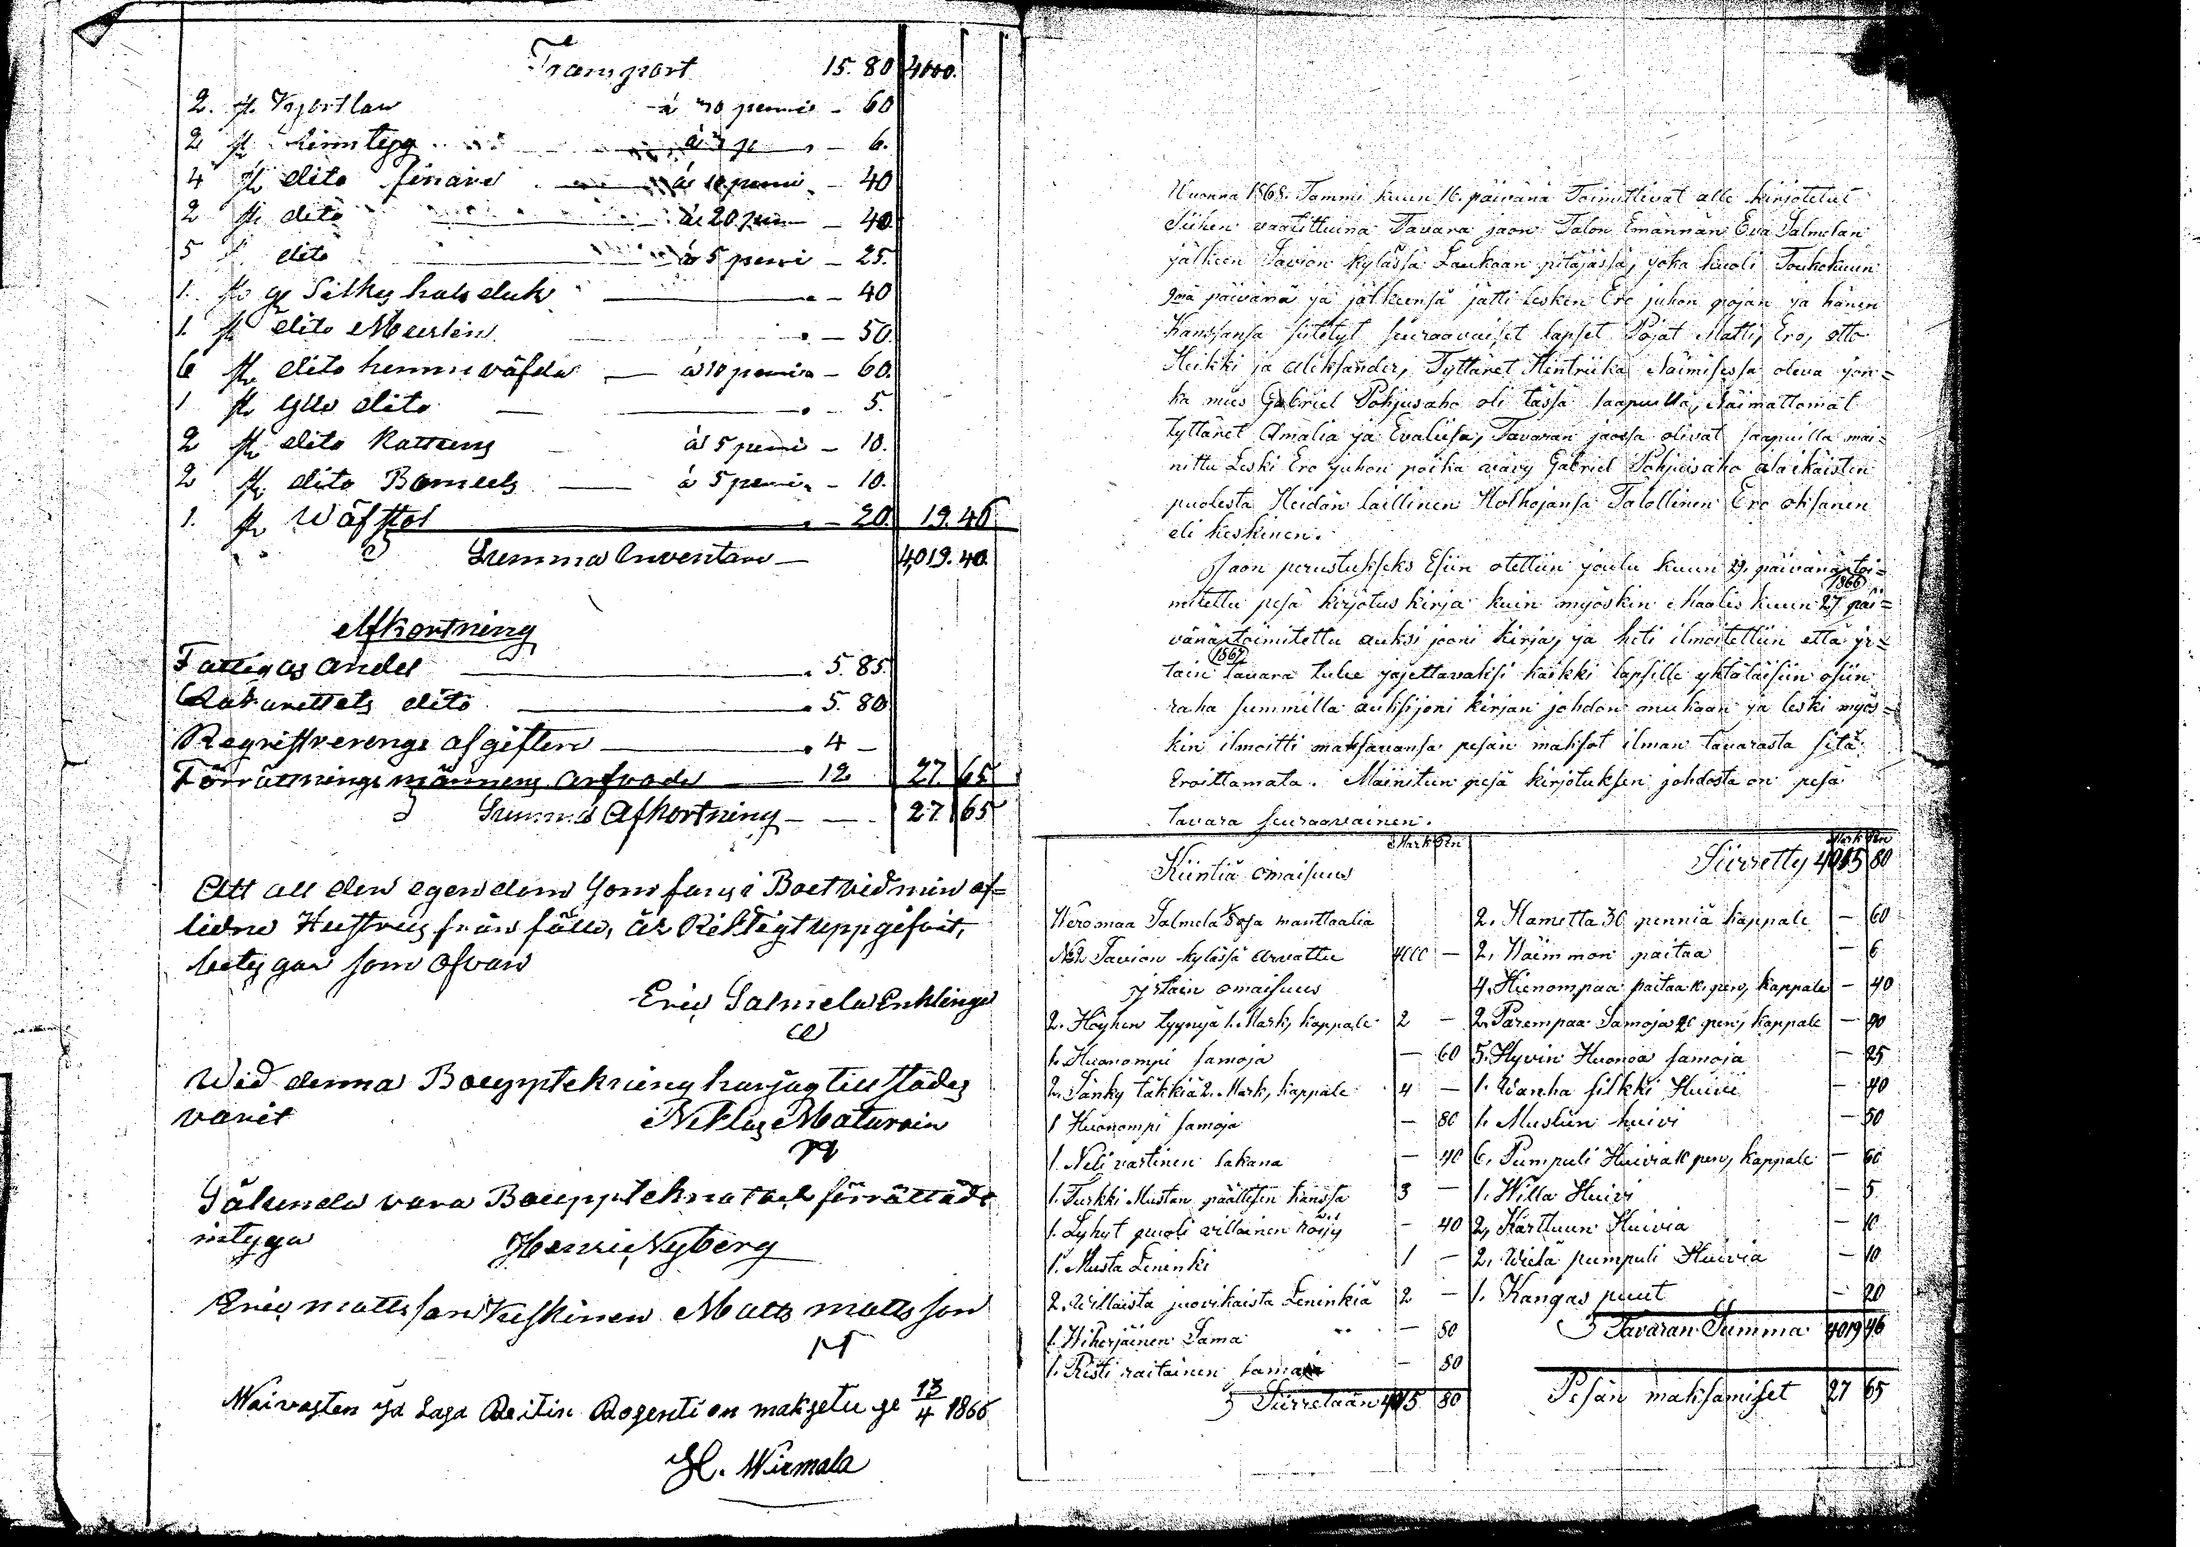 Transport 15. 80 4000.
2. st. Kjortlar á 30 penni - 60
2 st. á 3 p - 6.
4 st dito finare á 10 penni - 40
2 st. dito á 20 pen - 40
5 dito á 5 penni - 25.
1. st. Silkes halsduk - 40
1. st dito Muslin - 50.
6 st dito hemmväfda á 10 penni - 60.
1 st Ylle dito 5.
2 st dito Kattuns á 5 penni - 10.
2 st. dito Bomuls á 5 penni - 10.
1. st. Wäfstol - 20 19. 46
Summa Inventari — 4,019. 46
Afkortning
Fattigas andel 5. 85.
dito 5. 80
Registrerings afgiften 4 -
Förrättnings männens arfvode 12 27 65
Summa Afkortning 27 65
Att all den egendom som fans i Boet vid min af=
lidne Hustrus från fälle, är Riktigt uppgifvit,
betygar som ofvan
Eric Salmela Enklinge
Wid denna Bouppteckning har jag till städes
varit Niklas Maturain
Sålunda vara Bouppteknat och förrättadt
intyga Henric Nyberg
Eric mattsson Keskinen Matts mattsson
Waivasten ja Lasa Reitin Rosenti on maksetu ge 13/4 1866
H. Wirmala
Wuonna 1868. Tammi kuun 16. päivänä Toimittivat alle kirjotetut
Siihen vaadittuina Tavara jaon Talon Emännän Eva Salmelan
jälkeen Savion kylässä Laukaan pitäjässä, joka kuoli Toukokuun
9mä päivänä ja jälkeensä jätti lesken Ero juhon pojan ja hänen
Kanssansa siitetyt seuraavaiset lapset Pojat Matti, Ero, otto
Heikki ja Aleksander, Tyttäret Hintriika Naimisessa oleva jon=
ka mies Gabriel Pohjusaho oli tässä saapuilla, Naimattomat
tyttäret Amalia ja Evaliisa, Tavaran jaossa olivat saapuilla mai=
nittu Leski Ero juhon poika vävy Gabriel Pohjusaho alaikäisten
puolesta Heidän laillinen Holhojansa Talollinen Ero oksanen
eli keskinen.
Jaon perustukseks Esiin otettiin joulu kuun 29. päivänä toi=
1866
mitettu pesä kirjotus kirja kuin myöskin Maalis kuun 27 päi=
vänä toimitettu auksi jooni kirja, ja heti ilmoitettiin että ir=
1867
tain tavara tulee jajettavaksi kaikki lapsille yhtäläisiin osiin
raha summilla auksijoni kirjan johdon mukaan ja leski myös=
kin ilmoitti maksavansa pesän maksot ilman tavarasta sitä
Eroittamata. Mainitun pesä kirjotuksen johdosta on pesä
tavara seuraavainen.
Mark Pen
Kiintiä omaisuus
Weromaa Salmela osa manttaalia
No 2 Savion kylässä arvattu 4000 —
irtain omaisuus
2. Höyhen tyynyä 1. Mark, kappale 2 —
1. Huonompi samoja — 60
2. Sänky täkkiä 2. Mark, kappale 4 —
1 Huonompi samoja — 80
1. Neli vartinen lakana — 40
1. Turkki Mustan päällisen kanssa 3 —
1. Lyhyt puoli villainen röijy — 40
1. Musta Leninki 1 —
2. Willaista juovikaista Leninkiä 2 —
1. Wiherjäinen Sama — 80
1. Risti raitainen sama — 80
Siirretään 4015 80
Mark Pen
Siirretty 4015 80
2. Hametta 30 penniä kappale — 60
2. Waimmon paitaa — 6
4. Hienompaa paitaa 10 pen, kappale — 40
2. Parempaa Samoja 20 pen, kappale — 40
5. Hyvin Huonoa samoja — 25
1. Wanha silkki Huivi — 40
1. Musliin huivi — 50
6. Pumpuli Huivia 10 pen, kappale — 60
1. Willa Huivi — 5
2. Karttuun Huivia — 10
2. Wielä pumpuli Huivia — 10
1. Kangas puut — 20
Tavaran Summa 4019 46
Pesän maksamiset 27 65